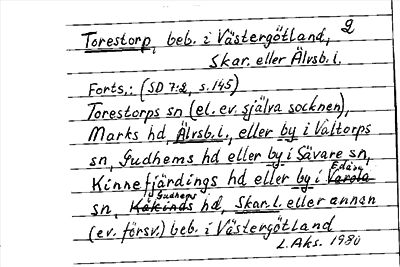 2
Torestorp, beb. i Västergötland,
Skar. eller Älvsb. l.
Forts.: (SD 7:2, s. 145)
Torestorps sn (el. ev. själva socknen),
Marks hd, Älvsb. l., eller by i Valtorps
sn, Gudhems hd eller by i Sävare sn,
Edåsa
Kinnefjärdings hd eller by i Varola
Gudhems
sn, Kåkinds hd, Skar. l. eller annan
(ev. försv.) beb. i Västergötland
L. Aks. 1980